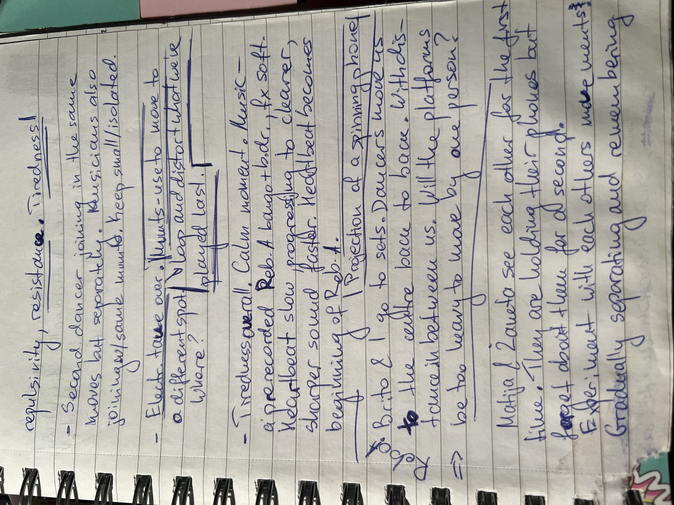 repulsivity, resistance. Tiredness!
- Second dancer joining in the same
moves but separately. Musicians also
joining w/ same mvmnts. Keep small/isolated.
- Electr. take over. Mvmnts - use to move to
a different spot / Loop and distort what were
Where? played last.
- Tiredness overall. Calm moment. Music -
a prerecorded Reb. A bango + bdr, fx soft.
Heartbeat slow progressing to clearer,
sharper sound faster. Heartbeat becomes
beginning of Reb. A.
Projection of a spinning phone
Brito & I go to sets. Dancers move us
to the centre back to back. With dis-
tance in between us. Will the platforms
=> be too heavy to move by one person?
Matija & Zaneta see each other for the first
time. They are holding their phones but
forget about them for a second.
Experiment with each others movements
Gradually separating and remembering